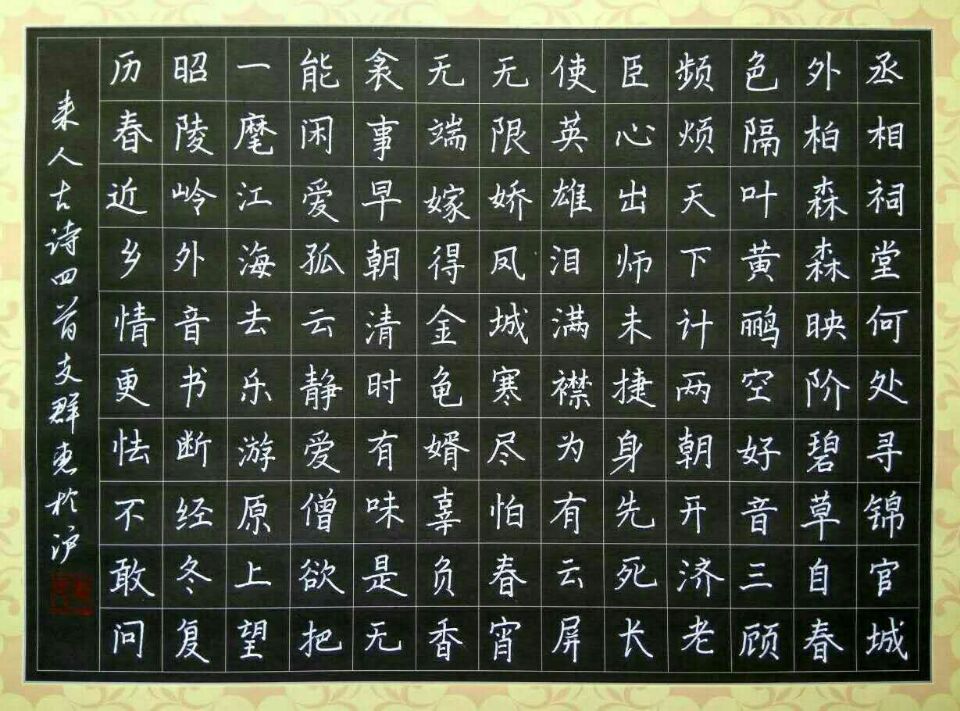 丞相祠堂何处寻锦官城
外柏森森映阶碧草自春
色隔叶黄鹂空好音三顾
频烦天下计两朝开济老
臣心出师未捷身先死长
使英雄泪满襟为有云屏
无限娇凤城寒尽怕春宵
无端嫁得金龟婿辜负香
衾事早朝清时有味是无
能闲爱孤云静爱僧欲把
一麾江海去乐游原上望
昭陵岭外音书断经冬复
历春近乡情更怯不敢问
来人古诗四首支群惠於沪